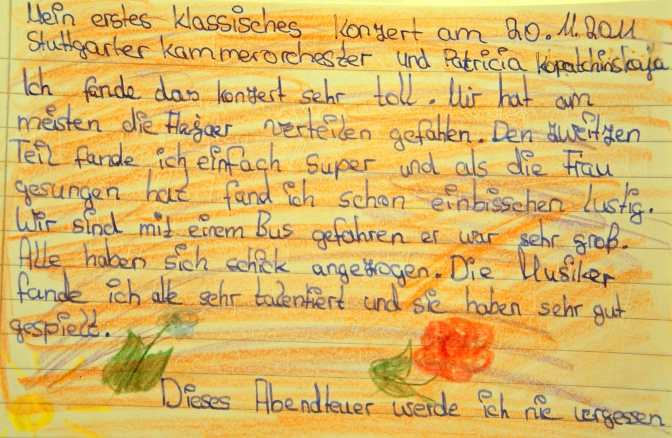 Mein erstes klassisches Konzert am 20.11.2011
Stuttgarter Kammerorchester und Patricia Kopatchinskaja
Ich fande das konzert sehr toll. Mir hat am
meisten die verteilen gefahlen. Den zweitzen
Teil fande ich einfach Super und als die Frau
gesungen hat fand ich schon einbisschen lustig.
Wir sind mit einem Bus gefahren er war sehr groß.
Alle haben sich schick angezogen. Die Musiker
fande ich alle sehr talentiert und sie haben sehr gut
gespielt.
Dieses Abendteuer werde ich nie vergessen